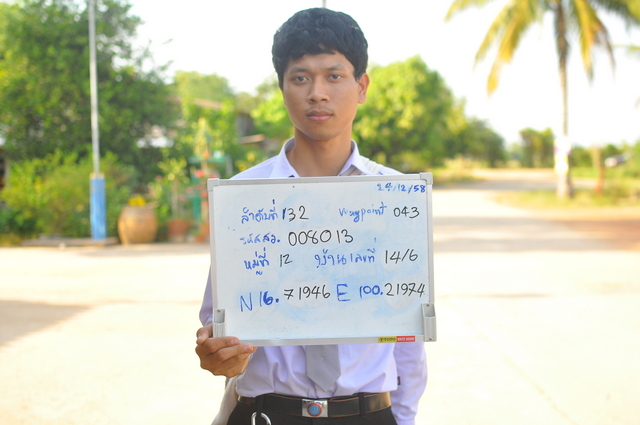 24/12/58
ลำดับที่ 132 waypoint 043
รหัสสจ. 008013
หมู่ที่ 12 บ้านเลขที่ 14/6
N 16.71946 E 100.21974